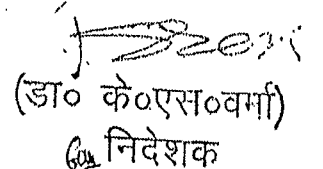 (डा० के०एस०वर्मा)
निदेशक